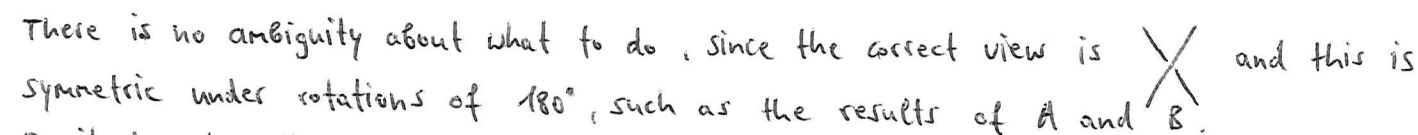 There is no ambiguity about what to do, since the correct view is X and this is
symmetric under rotations of 180°, such as the results of A and B.